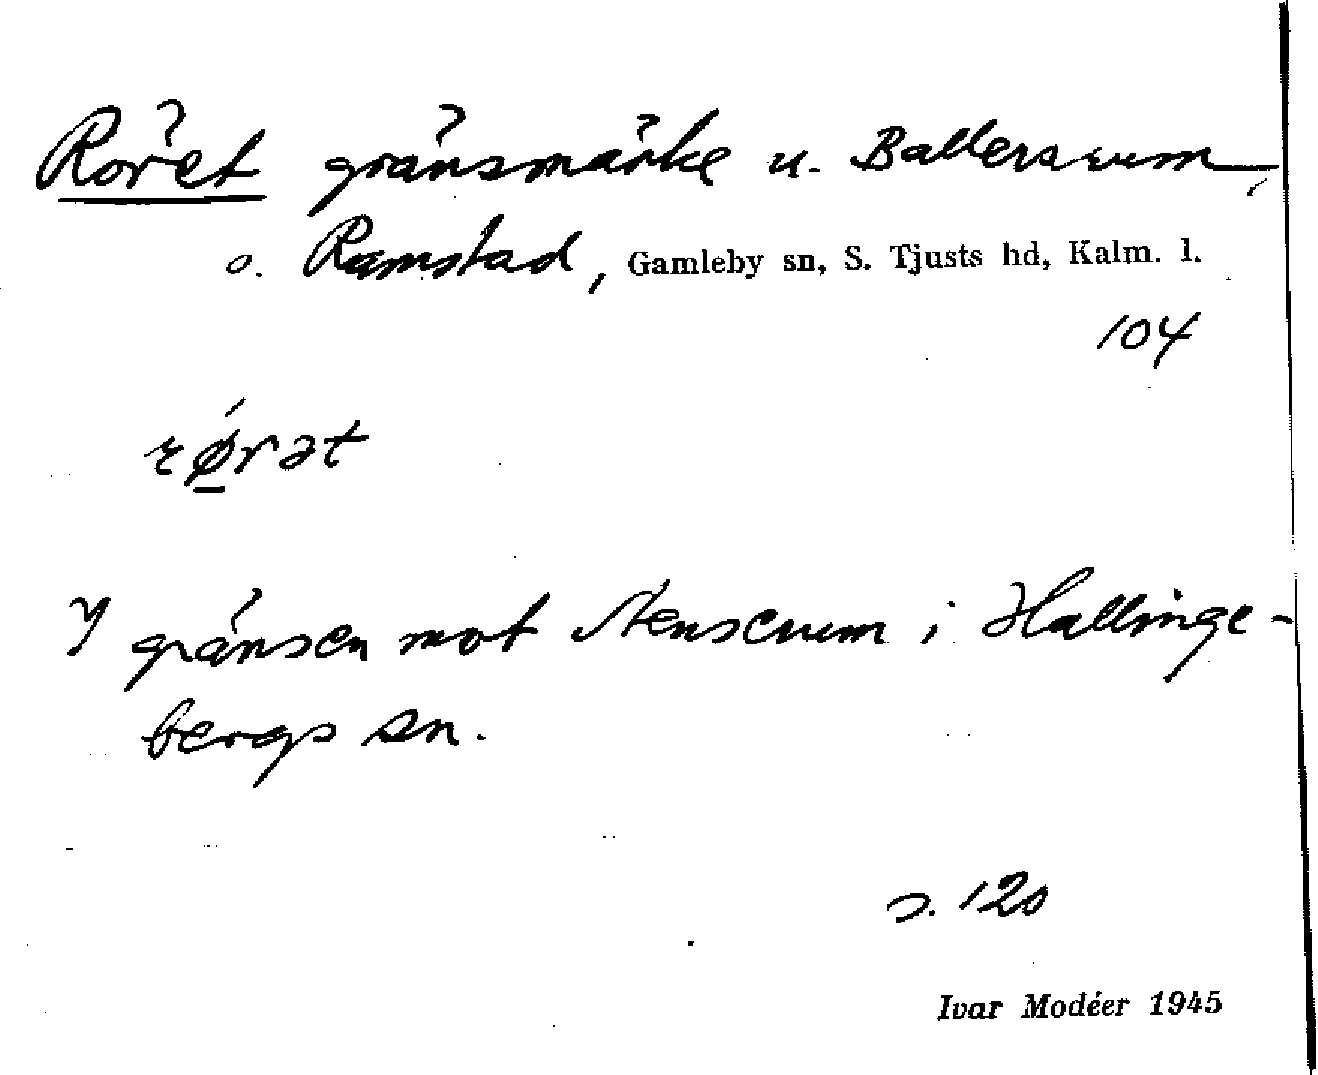 Röret gränsmärke u. Ballerscum,
o. Ramstad, Gamleby sn, S. Tjusts hd, Kalm. l.
104
rǿ̱rət
I gränsen mot Nenscum i Hallinge-
bergs sn.
s. 120
Ivar Modéer 1945